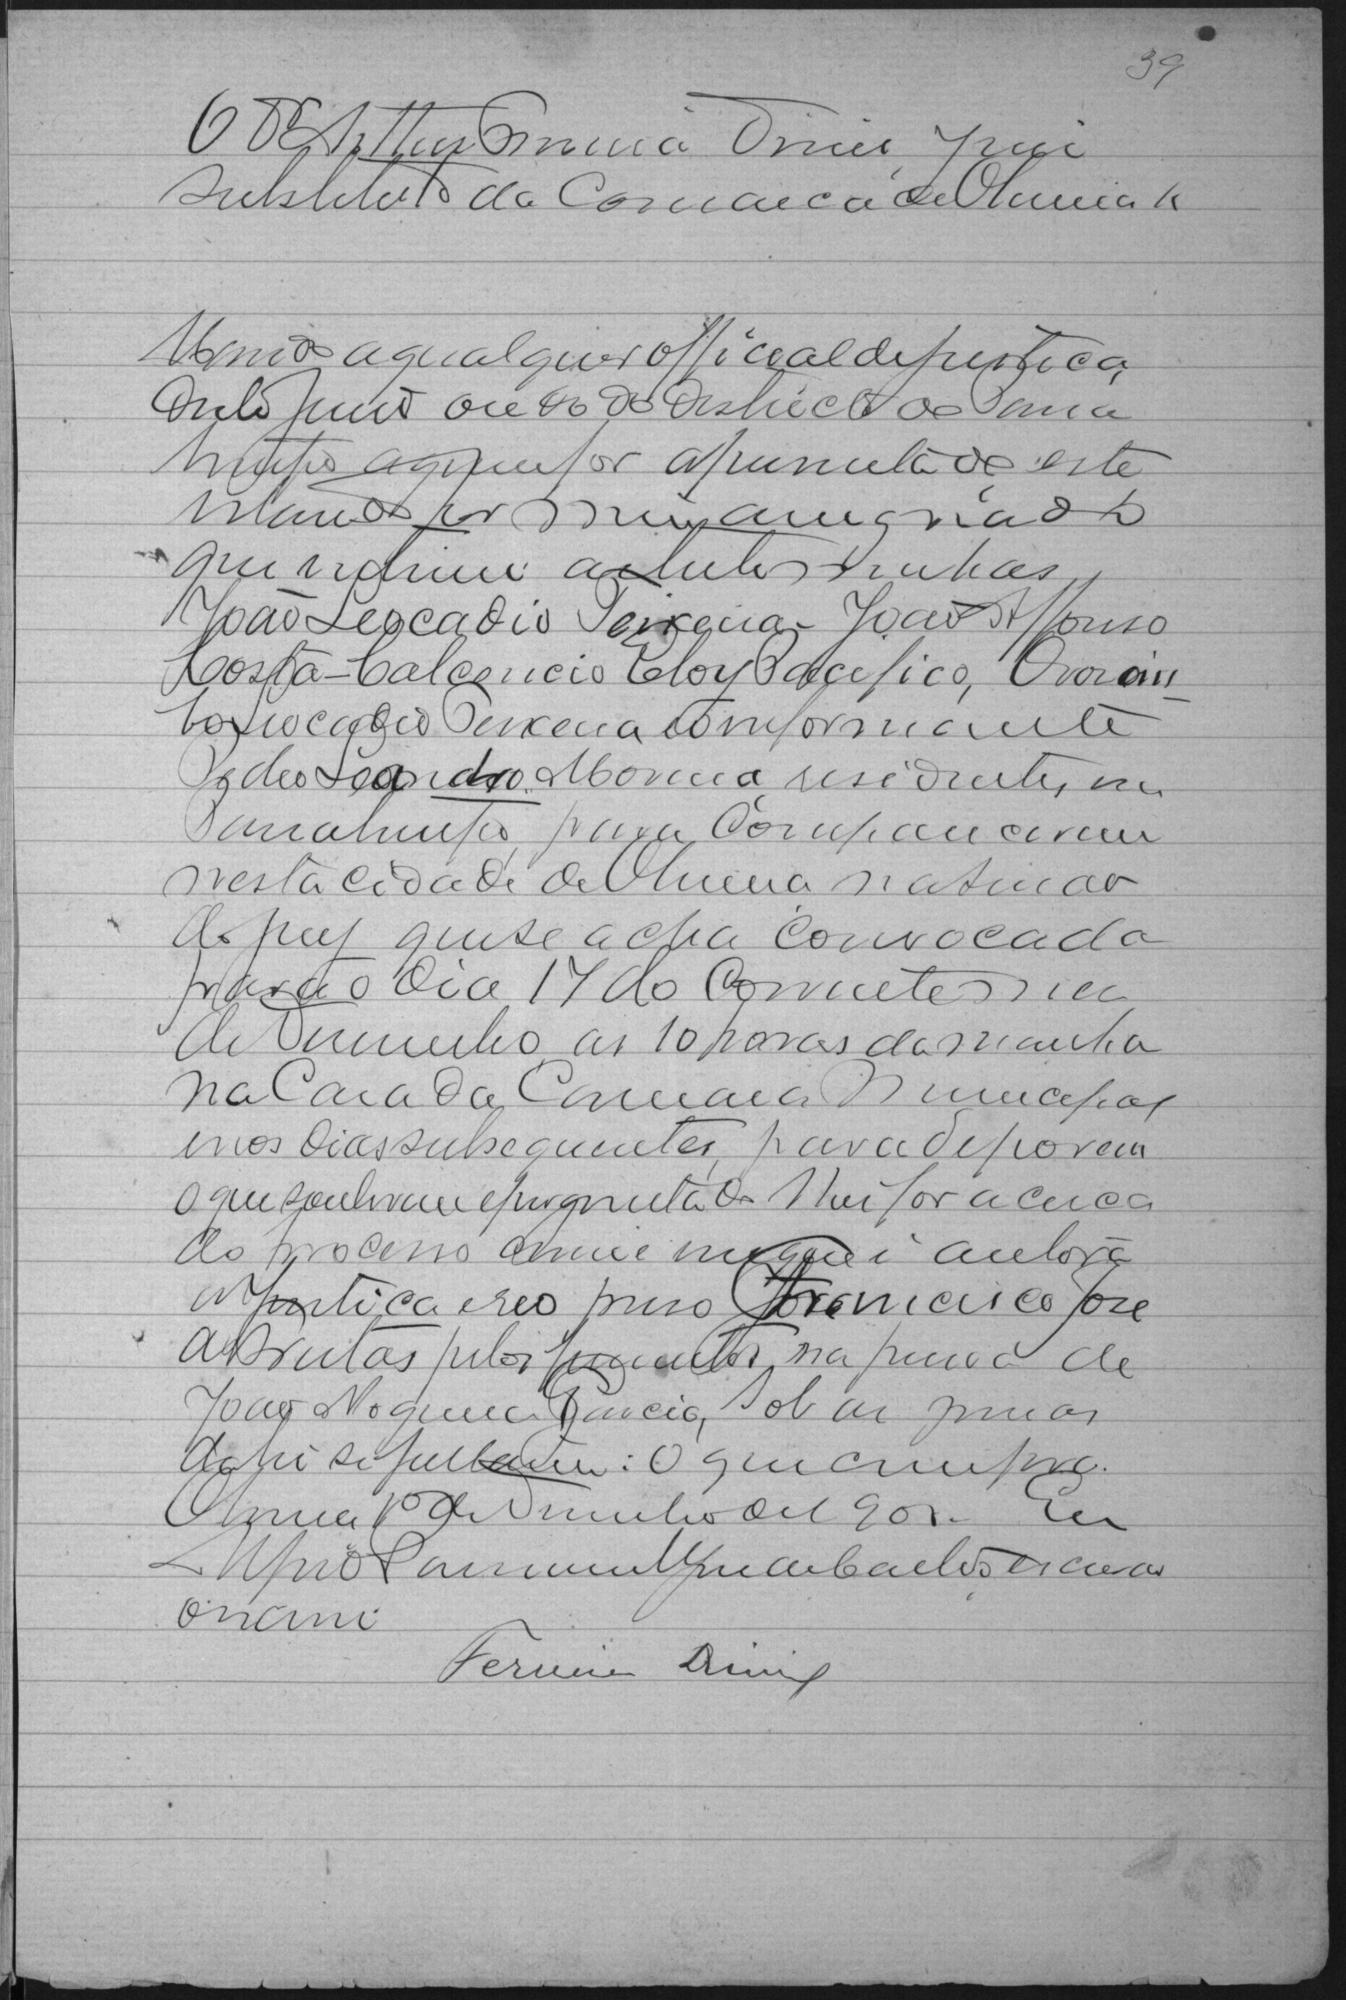 39
O Dr Arthur Ferreira Diniz, Juiz
substituto da Comarca de Oliveira &
Mando a qualquer official de justiça
deste Juizo ou ao do districto de
a quem for apresentado este
mandado por mim assignado
que notifique as testemunhas
João Leocadio Teixeira - João Affonso
Costa - Calcencio Eloy Pacifico,
Leocadio Teixeira e o informante
Pedro Leandro Moreira, residentes em
para comparecerem
nesta cidade de Oliveira na sessão
do jury que se acha convocada
para o dia 17 do corrente mez
de Dezembro, as 10 horas da manha
na Casa da Camara Municipal
e nos dias subsequentes, para deporem
o que souberem e perguntado lhes for acerca
do processo crime em que é autora
a Justiça e reo preso Francisco José
de Freitas pelos ferimentos na pessoa de
João Nogueira Garcia, sob as penas
da lei se faltarem: O que cumpra.
Oliveira 1º de Dezembro de 1901. Eu
escrivão
o escrevi
Ferreira Diniz